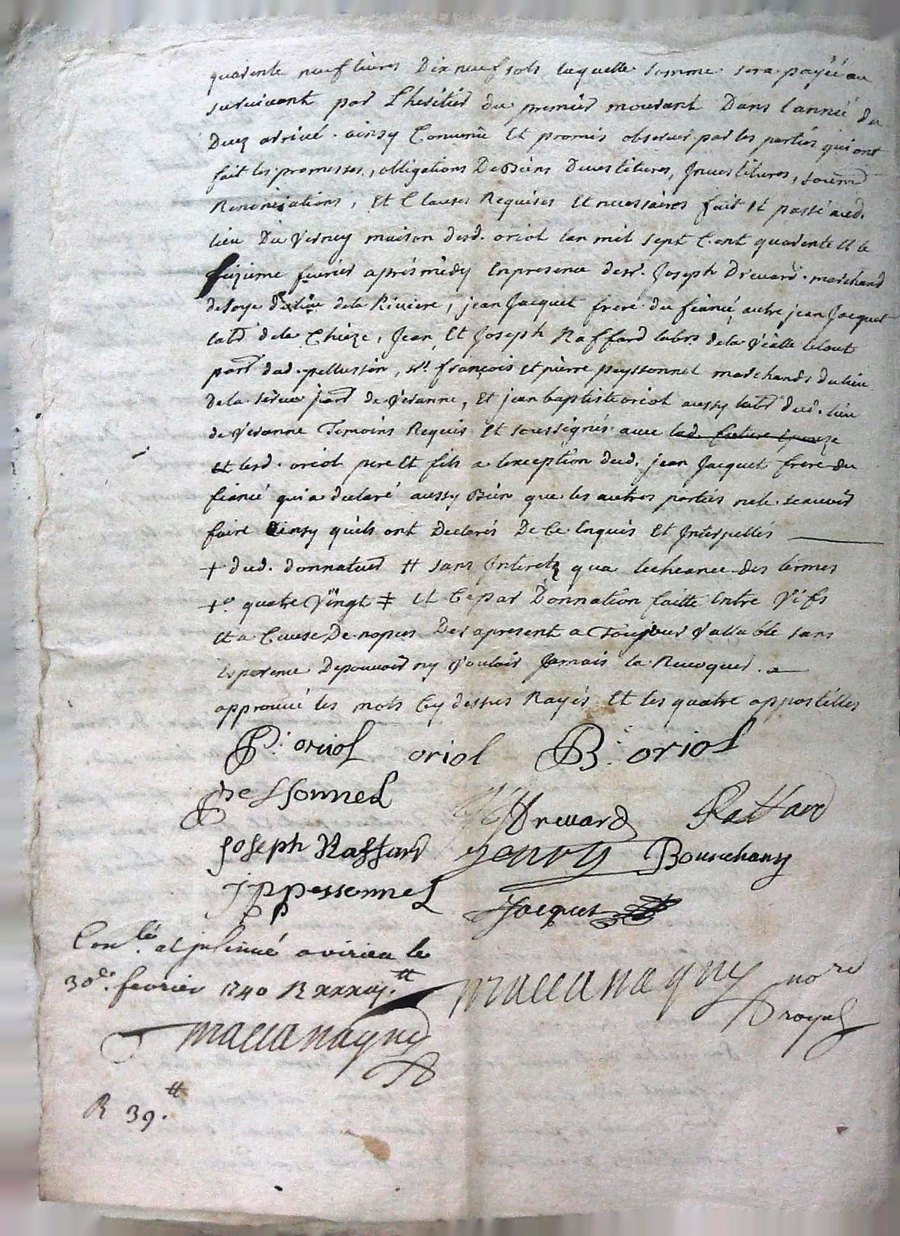 quarente neuf livres Dix neuf sols laquelle somme sera payée au
survivant par L'heritier du premier mourant Dans l'année du
Decez arrivé. ainsy Convenu Et promis observer par les parties qui ont
fait les promesses, obligations De Biens Devestitures, Jnvestitures, soûm
Renonciations, Et Clauses Requises Et necessaires fait Et passé aud.
lieu Du Verney maison desd. oriol Lan mil sept Cent quarente Et le
fevrier aprés midy En presence de sr. Joseph Dreuard marchand
de soye de la Riviere, jean Jacquet frere du fiancé, autre jean Jacquet
labr de la Chieze, Jean Et Joseph Raffard labrs de la Vialle le tout
parr. dud. pellussin, srs. françois et pierre peyssonnel marchands du lieu
de la parr. de Veranne, Et jean baptiste oriol aussy labr dud. lieu
de Veranne Temoins Requis Et soussignés avec lad. future Epouze
Et lesd. oriol pere Et fils a lexception dud. jean Jacquet frere du
fiancé qui a declaré aussy Bien que les autres parties ne le scavoir
faire Ainsy quils ont Declarés De Ce Enquis Et Interpellés
+ dud. donnateur # sans Jnterets qua lecheance des termes
+o quatre Vingt ǂ Et Ce par Donnation faitte Entre Vifs
Et a Cause De nopces Des apresent a Toujours Vallable sans
Esperence De pouvoir ny Vouloir Jamais la Revoquer.
approuvé les mots Cy dessus Rayés Et les quatre appostilles
P: oriol oriol B: oriol
pessonnel
Dreuard Raffard
Joseph Raffard Bourchany
jp pessonnel
Jacquet
Con.lé et jnsinué a virieu le
30e. fevrier 1740 R
maccanaguy nore
royal
maccanaguy
R 39.tt